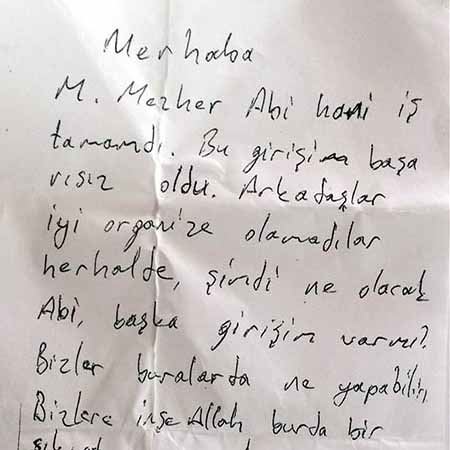 Merhaba
M. Mezher Abi hani iş
tamamdı. Bu girişim başa
rısız oldu. Arkadaşlar
iyi organize olamadılar
herhalde, şimdi ne olacak
Abi, başka girişim varmı?
Bizler buralarda ne yapabiliriz,
Bizlere inşeAllah burda bir